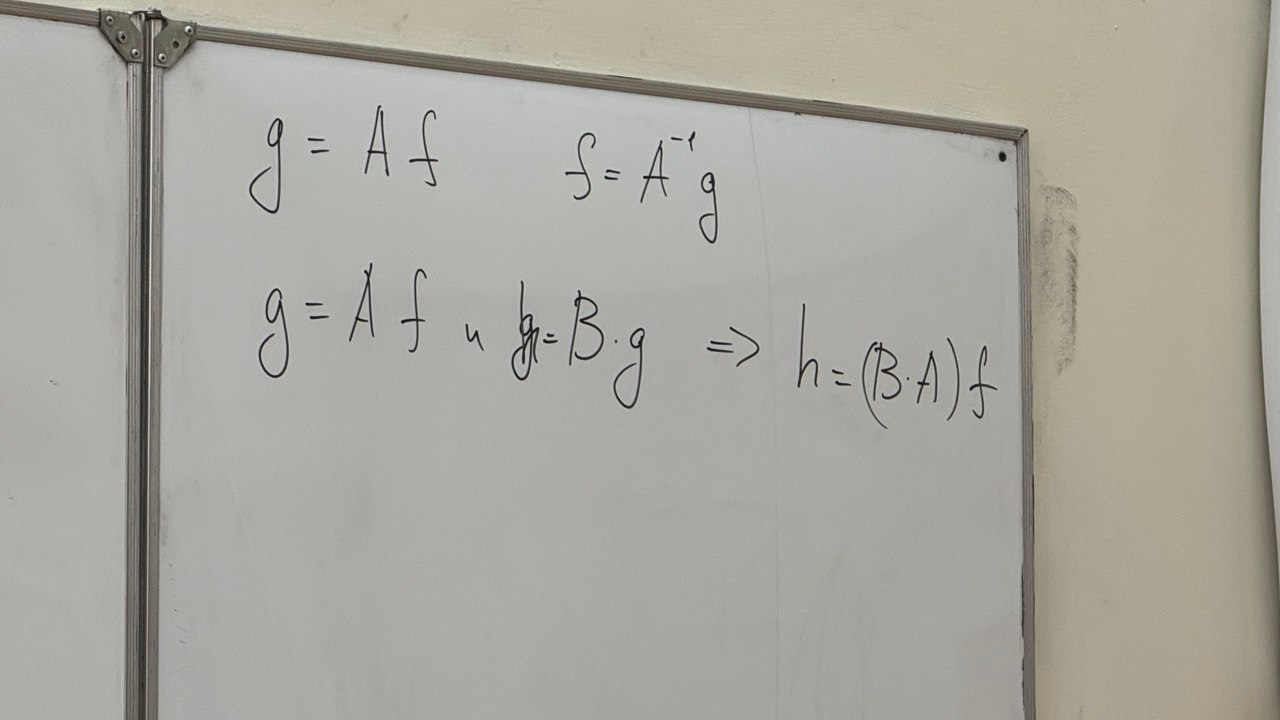 g = A f f = A⁻¹ g
g = A f и h = B · g => h = (B · A) f